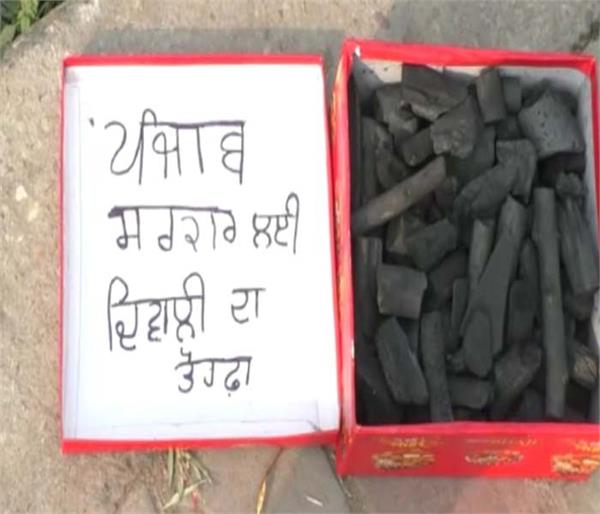 ਪੰਜਾਬ
ਸਰਕਾਰ ਲਈ
ਦਿਵਾਲੀ ਦਾ
ਤੋਹਫ਼ਾ